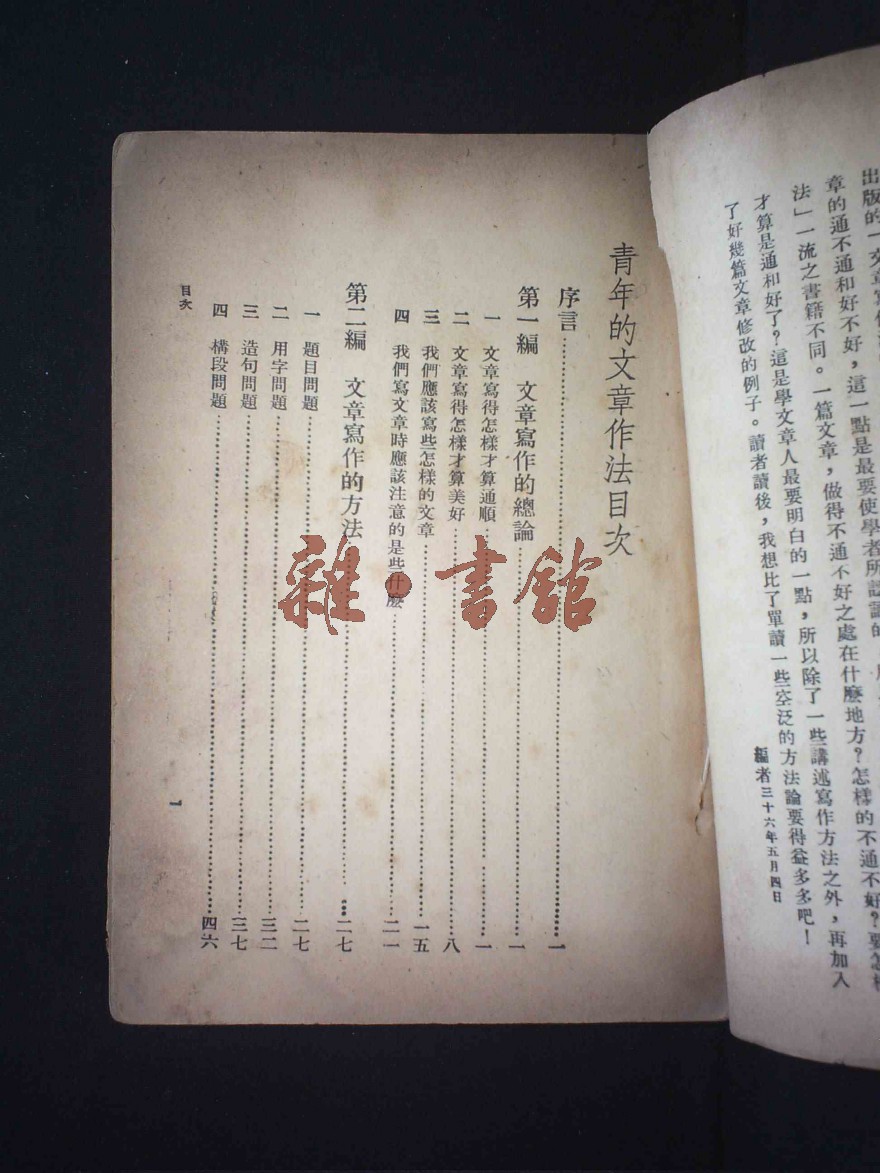 出版的一文章寫作
章的通不通和好不好，這一點是最要使學者所認識的
法」一流之書籍不同。一篇文章，做得不通不好之處在什麼地方？怎樣的不通不好？要怎樣
才算是通和好了？這是學文章人最要明白的一點，所以除了一些講述寫作方法之外，再加入
了好幾篇文章修改的例子。讀者讀後，我想比了單讀一些空泛的方法論要得益多多吧！
編者三十六年五月四日
青年的文章作法目次
序言……一
第一編　文章寫作的總論……一
一　文章寫得怎樣才算通順……一
二　文章寫得怎樣才算美好……八
三　我們應該寫些怎樣的文章……一五
四　我們寫文章時應該注意的是些什麼……二一
第二編　文章寫作的方法……二七
一　題目問題……二七
二　用字問題……三二
三　造句問題……三七
四　構段問題……四六
目次
1
雜·書館